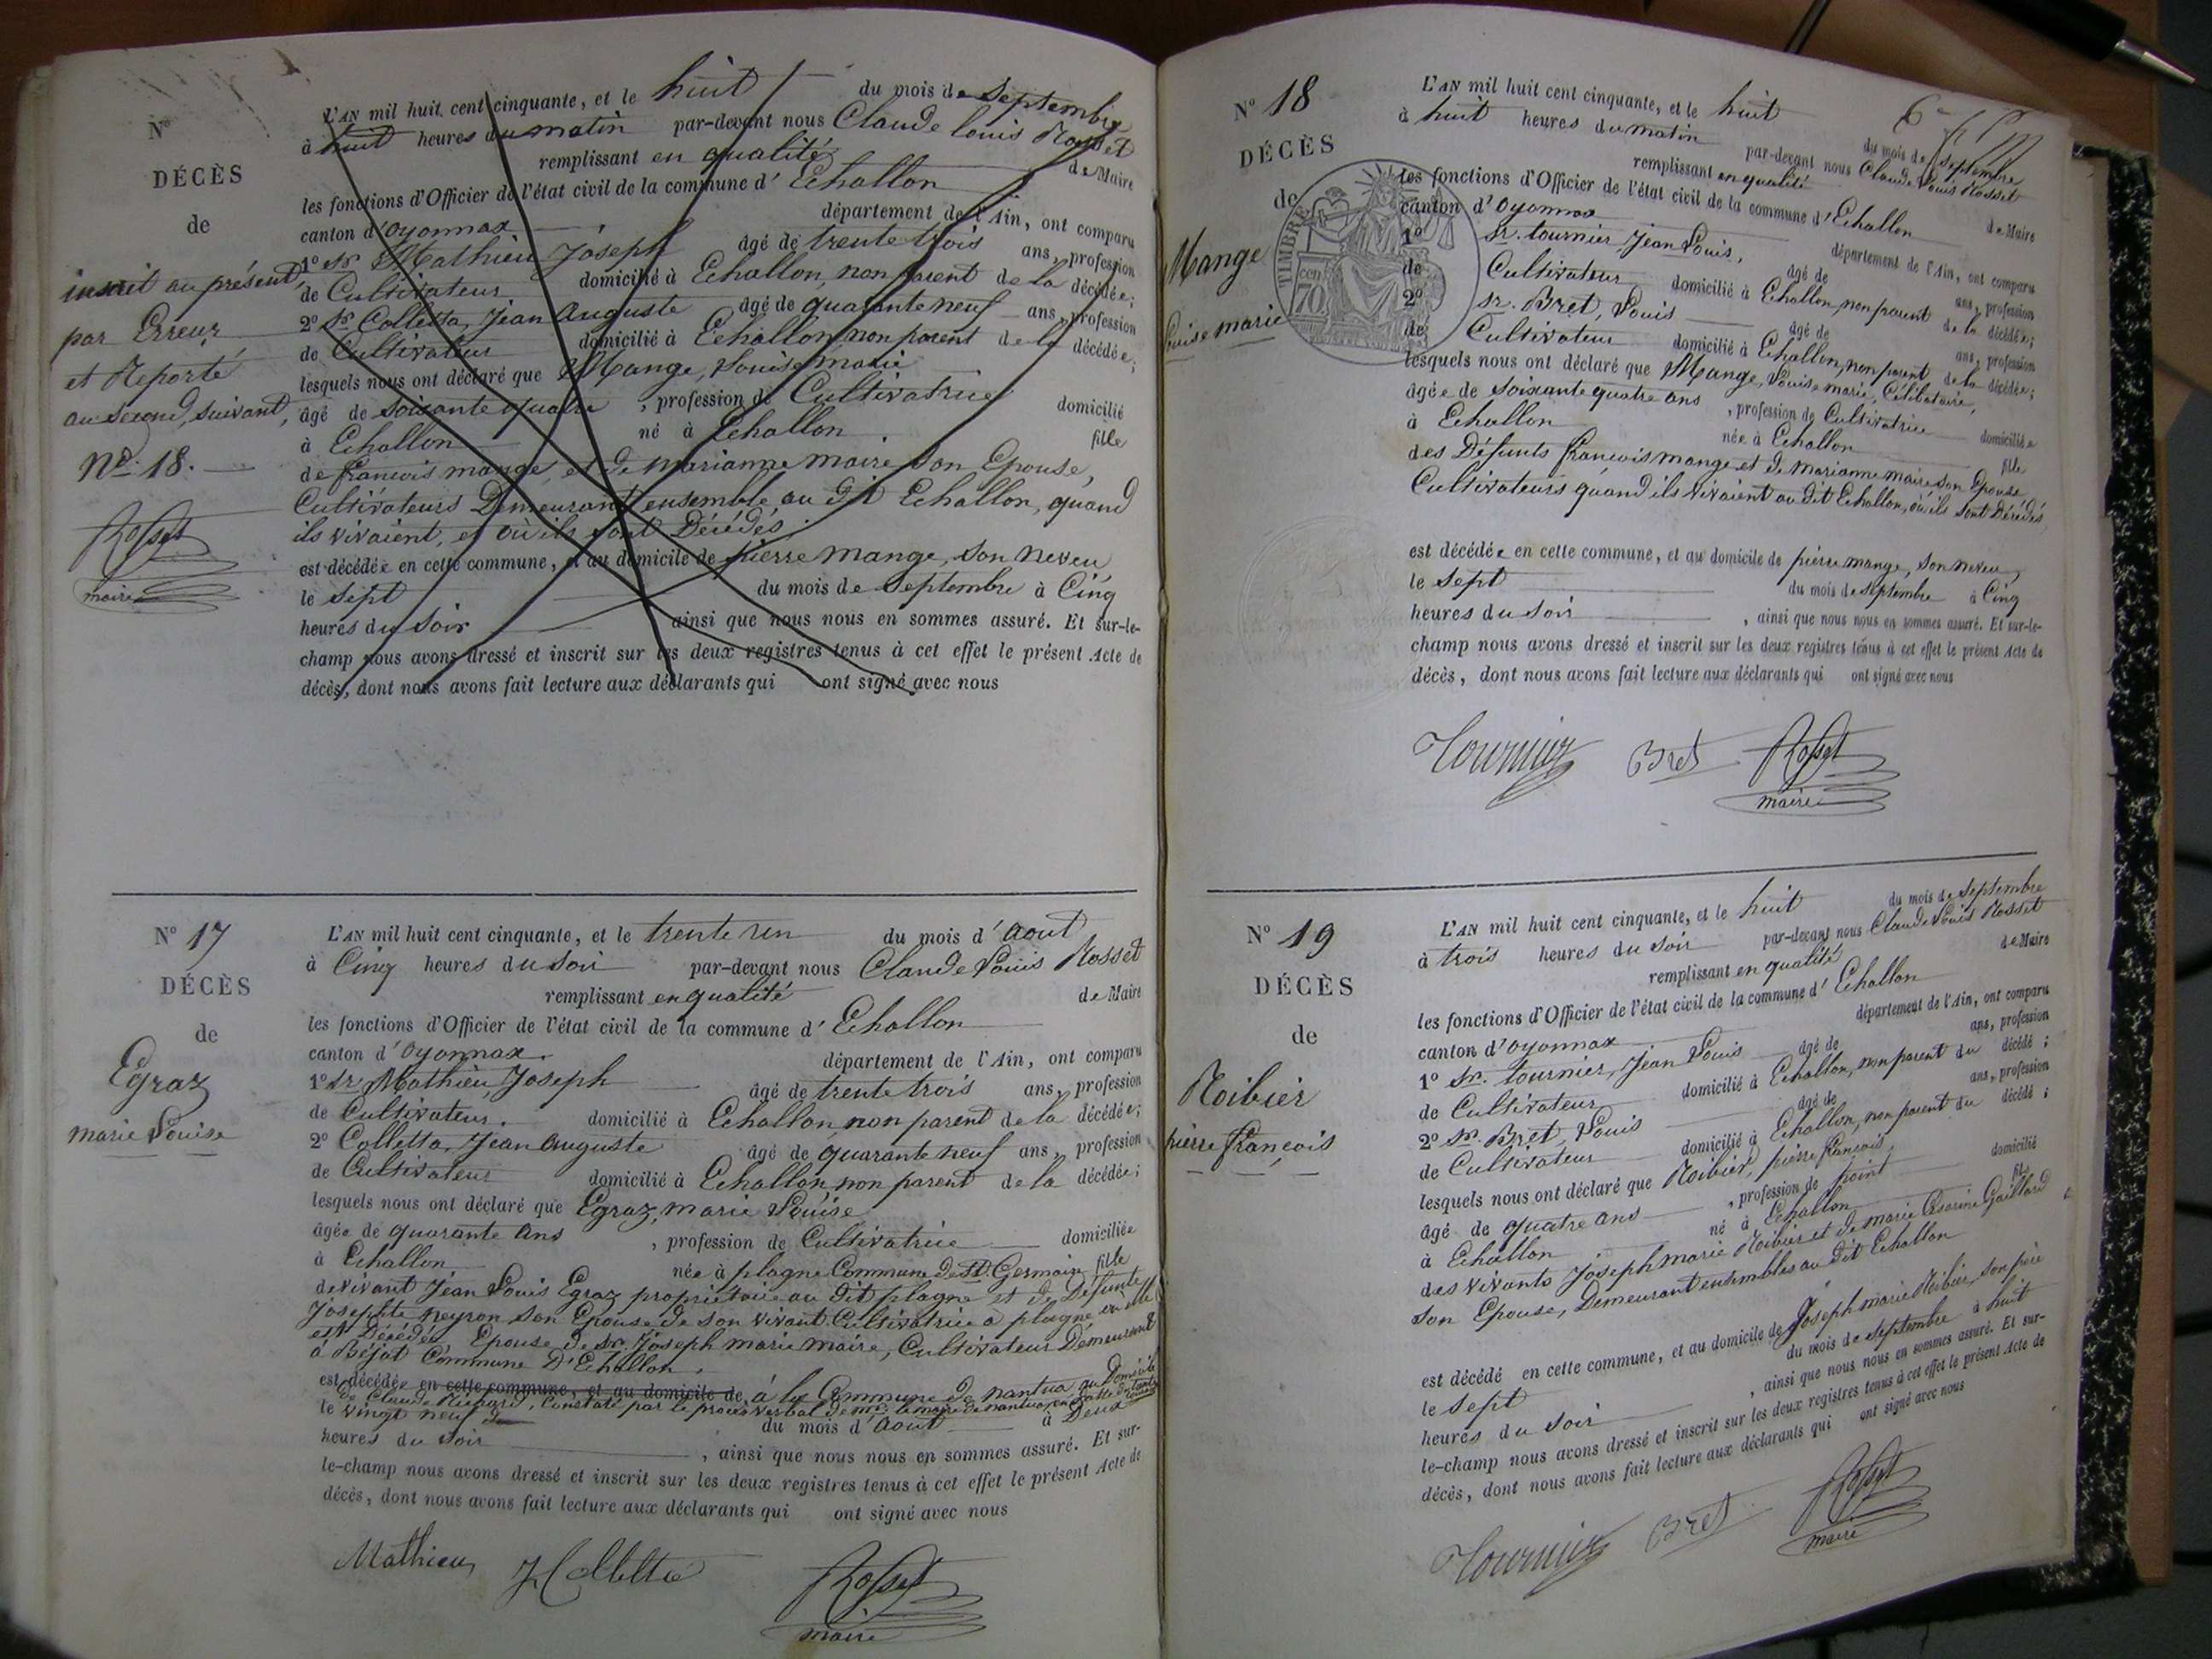 N°
DÉCÈS
de
inscrit au présent,
par Erreur
et Reporté
au second, suivant,
N° 18.
Rosset
maire
L'AN mil huit cent cinquante, et le huit du mois de Septembre
à huit heures du matin par-devant nous Claude louis Rosset
remplissant en qualité de Maire
les fonctions d'Officier de l'état civil de la commune d' Echallon
canton d'Oyonnax département de l'Ain, ont comparu
1° Sr Mathieu Joseph âgé de trente trois ans, profession
de Cultivateur domicilié à Echallon, non parent de la décédée;
2° Sr Colletta, Jean Auguste âgé de quarante neuf ans, profession
de Cultivateur domicilié à Echallon non parent de la décédée;
lesquels nous ont déclaré que Mange, Louise marie
âgé de Soixante quatre , profession de Cultivatrice domicilié
à Echallon né à Echallon. fille
de francois mange, et de marianne maire son Epouse,
Cultivateurs Demeurant ensemble au dit Echallon, quand
ils vivaient, et où ils sont Décédés.
est décédée en cette commune, et au domicile de pierre mange, son neveu
le Sept du mois de Septembre à Cinq
heures du Soir ainsi que nous nous en sommes assuré. Et sur-le-
champ nous avons dressé et inscrit sur les deux registres tenus à cet effet le présent Acte de
décès, dont nous avons fait lecture aux déclarants qui ont signé avec nous
N° 17
DÉCÈS
de
Egraz
marie Louise
L'AN mil huit cent cinquante, et le trente un du mois d' Aout
à Cinq heures du Soir par-devant nous Claude Louis Rosset
remplissant en qualité de Maire
les fonctions d'Officier de l'état civil de la commune d' Echallon
canton d'Oyonnax. département de l'Ain, ont comparu
1° Sr Mathieu, Joseph âgé de trente trois ans, profession
de Cultivateur. domicilié à Echallon, non parent de la décédée;
2° Colletta, Jean Auguste âgé de quarante neuf ans, profession
de Cultivateur domicilié à Echallon non parent de la décédée;
lesquels nous ont déclaré que Egraz, marie Louise
âgée de quarante Ans , profession de Cultivatrice domiciliée
à Echallon née à plagne Commune de St. Germain fille
de vivant Jean Louis Egraz propriétaire au dit plagne et de Défunte
Josephte neyron son Epouse de son vivant Cultivatrice à plagne, où elle
est Décédée Epouse de Sr. Joseph marie maire, Cultivateur Demeurant
à Béjat Commune D'Echallon.
est décédée en cette commune, et au domicile de à la Commune de nantua, au Domicile
de Claude Richard, Constaté par le procès verbal de mr. le maire de nantua, en
le vingt neuf du mois d' Aout à Deux
heures du Soir , ainsi que nous nous en sommes assuré. Et sur-
le-champ nous avons dressé et inscrit sur les deux registres tenus à cet effet le présent Acte de
décès, dont nous avons fait lecture aux déclarants qui ont signé avec nous
Mathieu J Colletta Rosset
maire
N° 18
DÉCÈS
de
Mange
Louise marie
TIMBRE
cen
70
L'AN mil huit cent cinquante, et le huit du mois de Septembre
à huit heures du matin par-devant nous Claude Louis Rosset
remplissant en qualité de Maire
les fonctions d'Officier de l'état civil de la commune d' Echallon
canton d'Oyonnax département de l'Ain, ont comparu
1° Sr. tournier Jean Louis, âgé de ans, profession
de Cultivateur domicilié à Echallon, non parent de la décédée;
2° Sr. Bret, Louis âgé de ans, profession
de Cultivateur domicilié à Echallon, non parent de la décédée;
lesquels nous ont déclaré que Mange, Louise marie, Célibataire,
âgée de Soixante quatre ans , profession de Cultivatrice domiciliée
à Echallon née à Echallon fille
des Défunts francois mange et de marianne maire son Epouse
Cultivateurs quand ils vivaient au dit Echallon, où ils sont Décédés
est décédée en cette commune, et au domicile de pierre mange, son neveu,
le Sept du mois de Septembre à Cinq
heures du Soir , ainsi que nous nous en sommes assuré. Et sur-le-
champ nous avons dressé et inscrit sur les deux registres tenus à cet effet le présent Acte de
décès, dont nous avons fait lecture aux déclarants qui ont signé avec nous
Tournier Bret Rosset
maire
N° 19
DÉCÈS
de
Roibier
pierre françois
L'AN mil huit cent cinquante, et le huit du mois de Septembre
à trois heures du Soir par-devant nous Claude Louis Rosset
remplissant en qualité de Maire
les fonctions d'Officier de l'état civil de la commune d' Echallon
canton d'Oyonnax département de l'Ain, ont comparu
1° Sr. tournier, Jean Louis âgé de ans, profession
de Cultivateur domicilié à Echallon, non parent du décédé;
2° Sr. Bret, Louis âgé de ans, profession
de Cultivateur domicilié à Echallon, non parent du décédé;
lesquels nous ont déclaré que Roibier, pierre francois,
âgé de quatre ans , profession de point domicilié
à Echallon né à Echallon fils
des vivants Joseph marie Roibier et de marie Césarine Gaillard
son Epouse, Demeurant ensembles au dit Echallon
est décédé en cette commune, et au domicile de Joseph marie Roibier, son père
le Sept du mois de Septembre à huit
heures du Soir , ainsi que nous nous en sommes assuré. Et sur-
le-champ nous avons dressé et inscrit sur les deux registres tenus à cet effet le présent Acte de
décès, dont nous avons fait lecture aux déclarants qui ont signé avec nous
Tournier Bret Rosset
maire